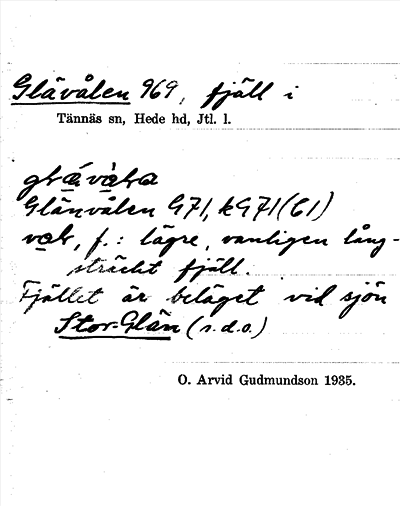 Glävålen 969, fjäll i
Tännäs sn, Hede hd, Jtl. l.
Glänvålen G71, kG71(61)
f.: lägre, vanligen lång-
sträckt fjäll.
Fjället är beläget vid sjön
Stor-Glän (s.d.o.)
O. Arvid Gudmundson 1935.